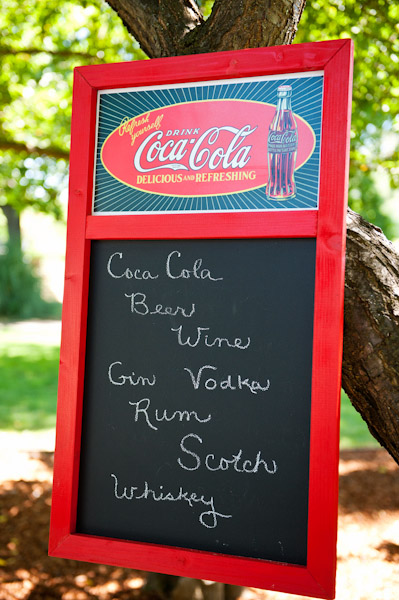 Refresh
yourself
DRINK
Coca-Cola
DELICIOUS AND REFRESHING
Coca-Cola
Coca Cola
Beer
Wine
Gin Vodka
Rum
Scotch
Whiskey